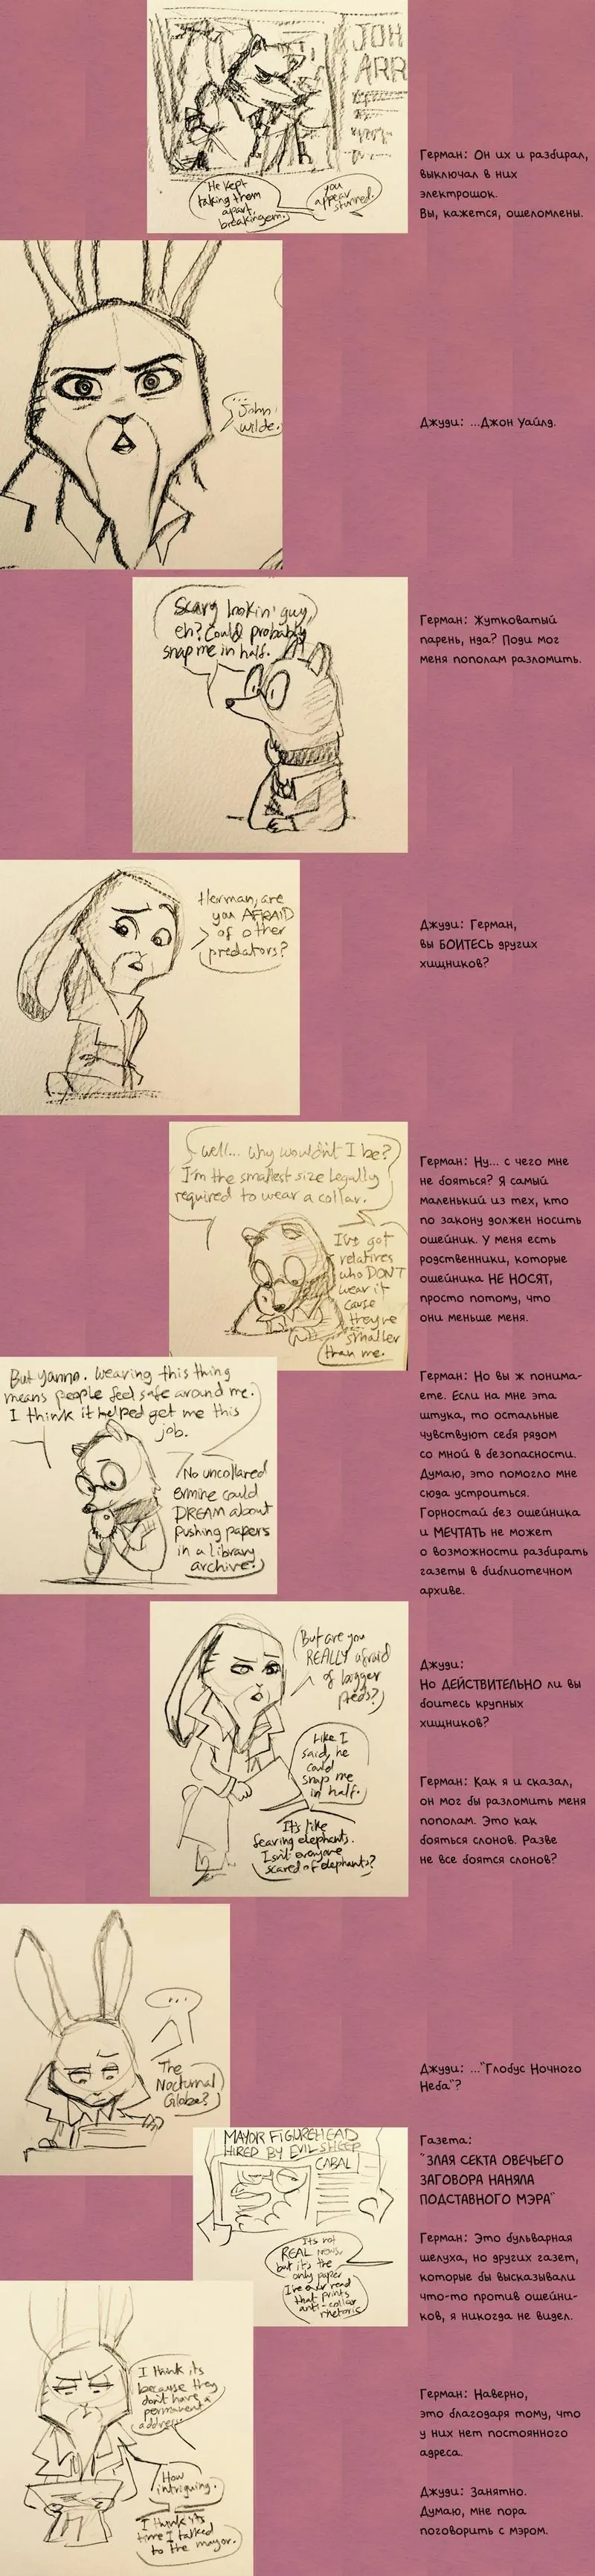 JOH
ARR
He kept
taking them
apart,
breaking em.
you
appear
stunned.
Герман: Он их и разбирал,
выключал в них
электрошок.
Вы, кажется, ошеломлены.
...John
wilde.
Джуди: ...Джон Уайлд.
Scary lookin' guy,
eh? Could probably
snap me in half.
Герман: Жутковатый
парень, нда? Поди мог
меня пополам разломить.
Herman, are
you AFRAID
of other
predators?
Джуди: Герман,
вы БОИТЕСЬ других
хищников?
well... why wouldn't I be?
I'm the smallest size legally
required to wear a collar.
I've got
relatives
who DON'T
wear it
cause
they're
smaller
than me.
Герман: Ну... с чего мне
не бояться? Я самый
маленький из тех, кто
по закону должен носить
ошейник. У меня есть
родственники, которые
ошейника НЕ НОСЯТ,
просто потому, что
они меньше меня.
But yanno. wearing this thing
means people feel safe around me.
I think it helped get me this
job.
No uncollared
ermine could
DREAM about
pushing papers
in a library
archive!
Герман: Но вы ж понима-
ете. Если на мне эта
штука, то остальные
чувствуют себя рядом
со мной в безопасности.
Думаю, это помогло мне
сюда устроиться.
Горностай без ошейника
и МЕЧТАТЬ не может
о возможности разбирать
газеты в библиотечном
архиве.
But are you
REALLY afraid
of bigger
preds?
Like I
said, he
could
snap me
in half.
It's like
fearing elephants.
Isn't everyone
scared of elephants?
Джуди:
Но ДЕЙСТВИТЕЛЬНО ли вы
боитесь крупных
хищников?
Герман: Как я и сказал,
он мог бы разломить меня
пополам. Это как
бояться слонов. Разве
не все боятся слонов?
...
The
Nocturnal
Globe?
Джуди: ..."Глобус Ночного
Неба"?
MAYOR FIGUREHEAD
HIRED BY EVIL SHEEP
CABAL
Its not
REAL news,
but it's the
only paper
I've ever read
that prints
anti-collar
rhetoric
Газета:
"ЗЛАЯ СЕКТА ОВЕЧЬЕГО
ЗАГОВОРА НАНЯЛА
ПОДСТАВНОГО МЭРА"
Герман: Это бульварная
шелуха, но других газет,
которые бы высказывали
что-то против ошейни-
ков, я никогда не видел.
I think its
because they
don't have a
permanent
address.
How
intriguing.
I think its
time I talked
to the mayor.
Герман: Наверно,
это благодаря тому, что
у них нет постоянного
адреса.
Джуди: Занятно.
Думаю, мне пора
поговорить с мэром.